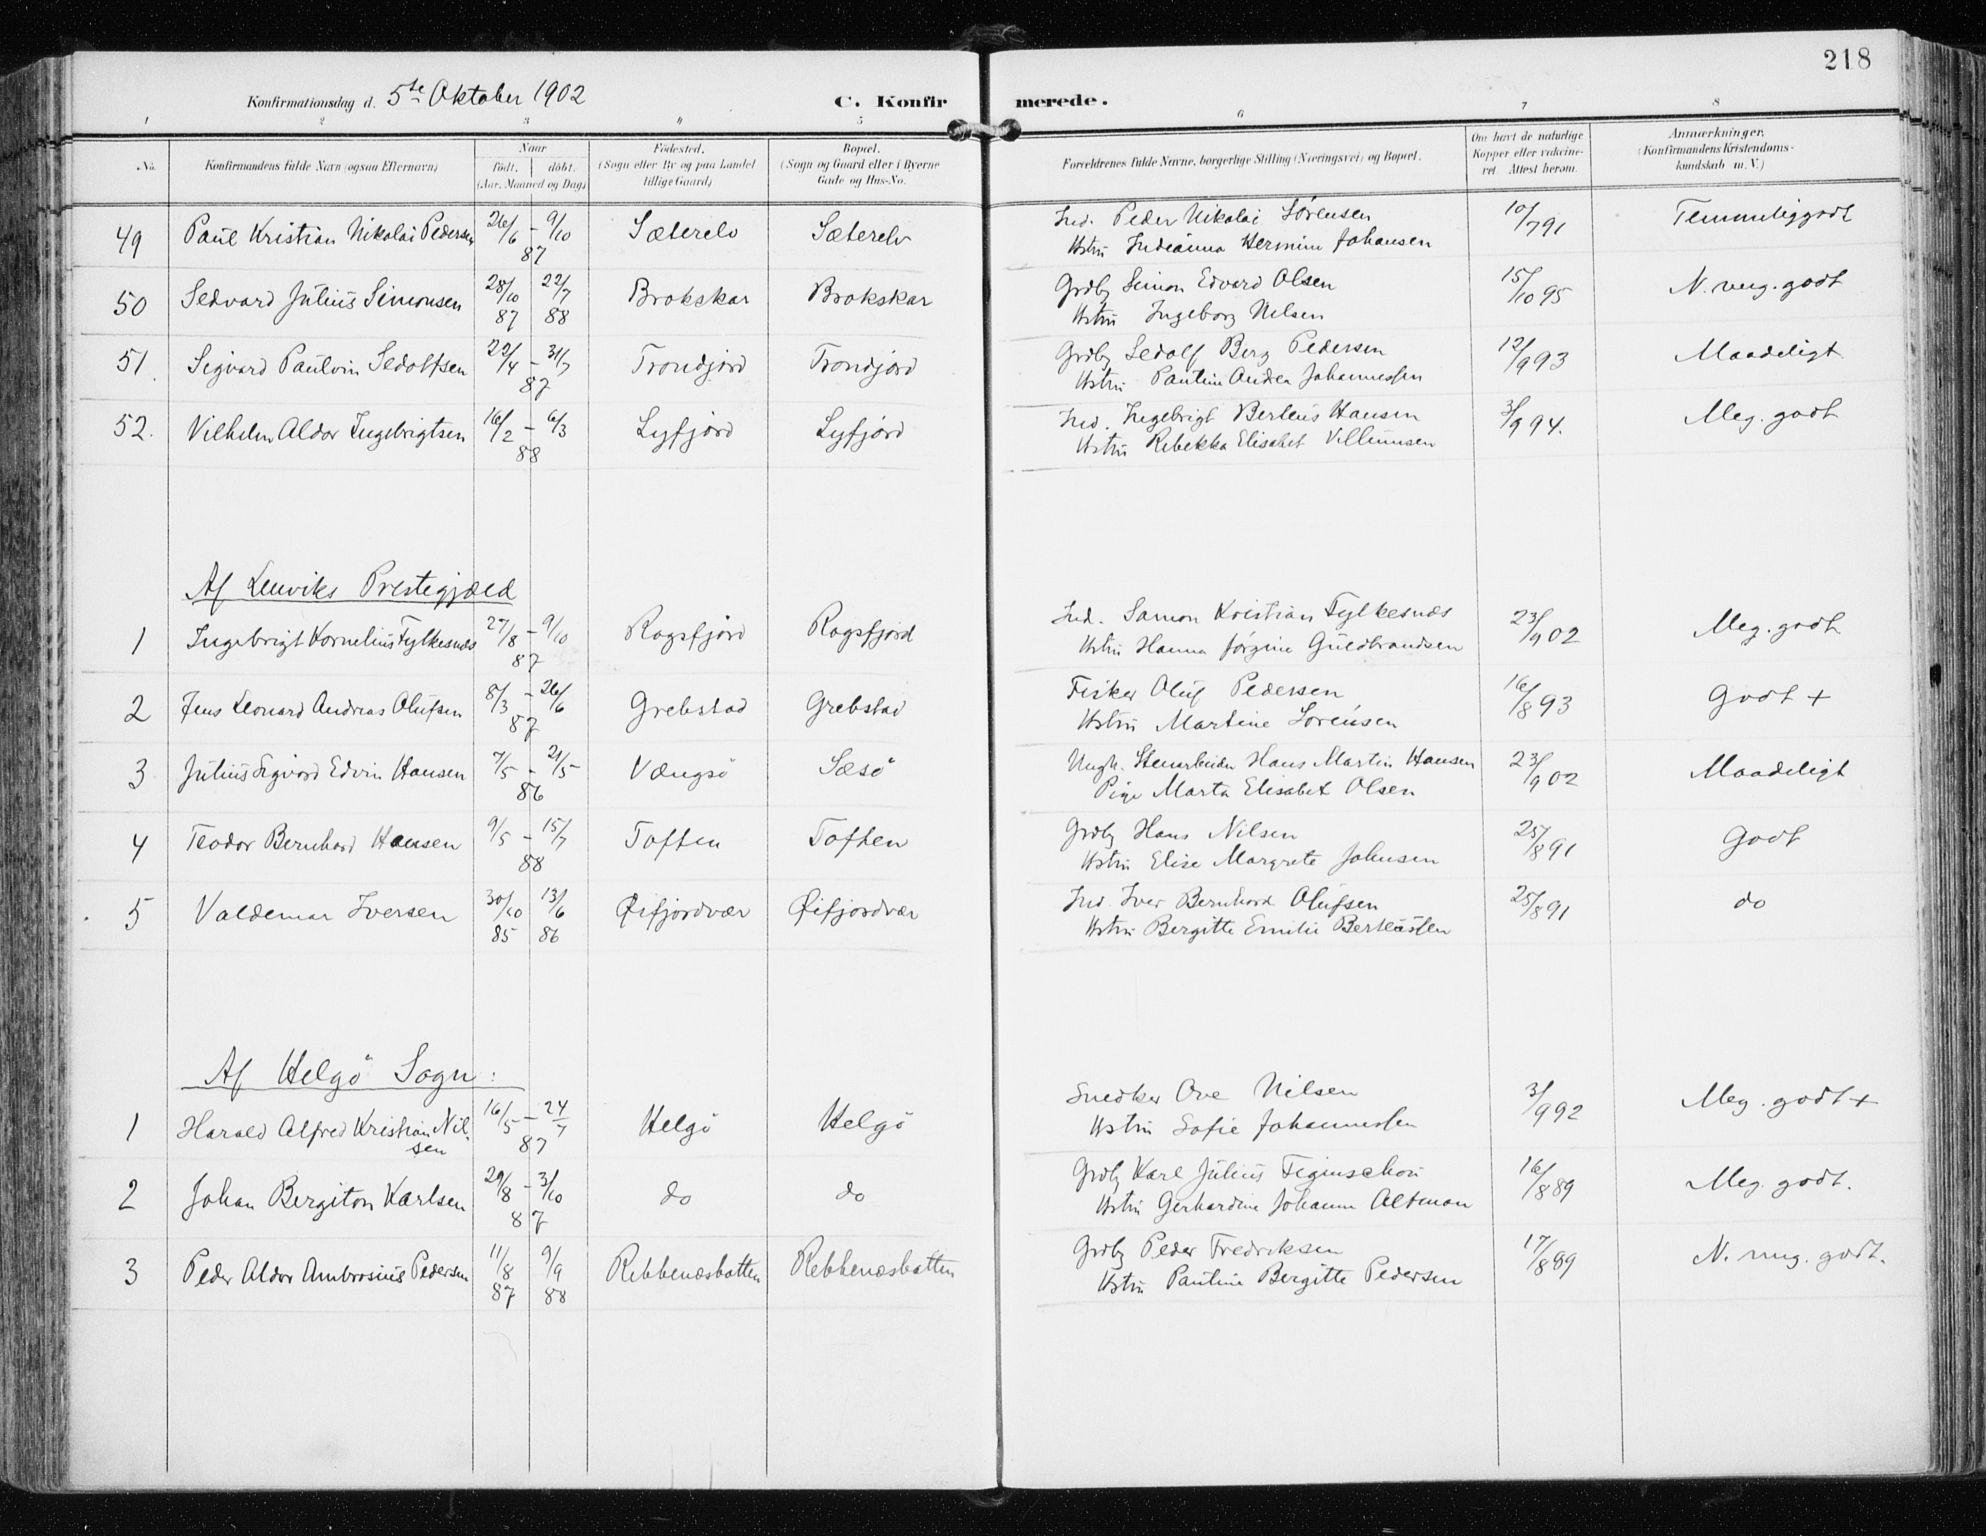 218
Konfirmationsdag d. 5te Oktober 1902 C. Konfirmerede.
1 2 3 4 5 6 7 8
No. Konfirmandens fulde Navn (ogsaa Efternavn) Naar født. døbt. (Aar, Maaned og Dag) Fødested. (Sogn eller By og paa Landet tillige Gaard) Bopæl. (Sogn og Gaard eller i Byerne Gade og Hus-No. Forældrenes fulde Navne, borgerlige Stilling (Næringsvei) og Bopæl. Om havt de naturlige Kopper eller vakcineret. Attest herom. Anmærkninger. (Konfirmandens Kristendomskundskab m. V.)
49 Paul Kristian Nikolai Pedersen 26/6 - 9/10 87 Sæterelv Sæterelv Ind. Peder Nikolai Sørensen 10/7 91 Temmeliggodt
Hstru Indianna Hermine Johansen
50 Sedvard Julius Simonsen 28/10 87 22/7 88 Brokskar Brokskar Grdbr Simon Edvard Olsen 15/10 95 N. meg. godt
Hstru Ingeborg Nilsen
51. Sigvard Paulvin Sedolfsen 22/4 - 31/7 87 Trondjord Trondjord Grdbr Sedolf Berg Pedersen 12/9 93 Maadeligt
Hstru Pauline Andrea Johannessen
52. Vilhelm Aldor Ingebrigtsen 16/2 - 6/3 88 Lyfjord Lyfjord Ind. Ingebrigt Berteus Hansen 3/9 94. Meg. godt
Hstru Rebekka Elisabet Villumsen
Af Lenviks Prestegjæld
1 Ingebrigt Kornelius Fylkesnæs 27/8 - 9/10 87 Rogsfjord Rogsfjord Ind. Samon Kristian Fylkesnæs 23/9 02 Meg. godt
Hstru Hanna Jørgine Guldbrandsen
2 Jens Leonard Andreas Olufsen 8/3 - 26/6 87 Grebstad Grebstad Fisker Oluf Pedersen 16/8 93 Godt +
Hstru Martine Sørensen
3 Julius Sigvard Edvin Hansen 7/5 - 21/5 86 Vængsö Sæsö Ungk. Stenarbeider Hans Martin Hansen 23/9 02 Maadeligt
Pige Marta Elisabet Olsen
4 Teodor Bernhard Hansen 9/5 - 15/7 88 Toften Toften Grdbr Hans Nilsen 25/8 91 Godt
Hstru Elise Margrete Johnsen
5 Valdemar Iversen 30/10 85 13/6 86 Øifjordvær Øifjordvær Ind. Iver Bernhard Olufsen 25/8 91 do
Hstru Bergitte Emilie
Af Helgö Sogn:
1 Harald Alfred Kristian Nilsen 16/5 - 24/7 87 Helgö Helgö Snedker Ove Nilsen 3/9 92 Meg. godt +
Hstru Sofie Johannessen
2 Johan Bergiton Karlsen 29/8 - 3/10 87 do do Grdbr Karl Julius Figenschou 16/8 89 Meg. godt.
Hstru Gerhardine Johanne Altman
3 Peder Aldor Ambrosius Pedersen 11/8 87 9/9 88 Rebbenæsbotten Rebbenæsbotten Grdbr Peder Fredriksen 17/8 89 N. meg. godt.
Hstru Pauline Bergitte Pedersen